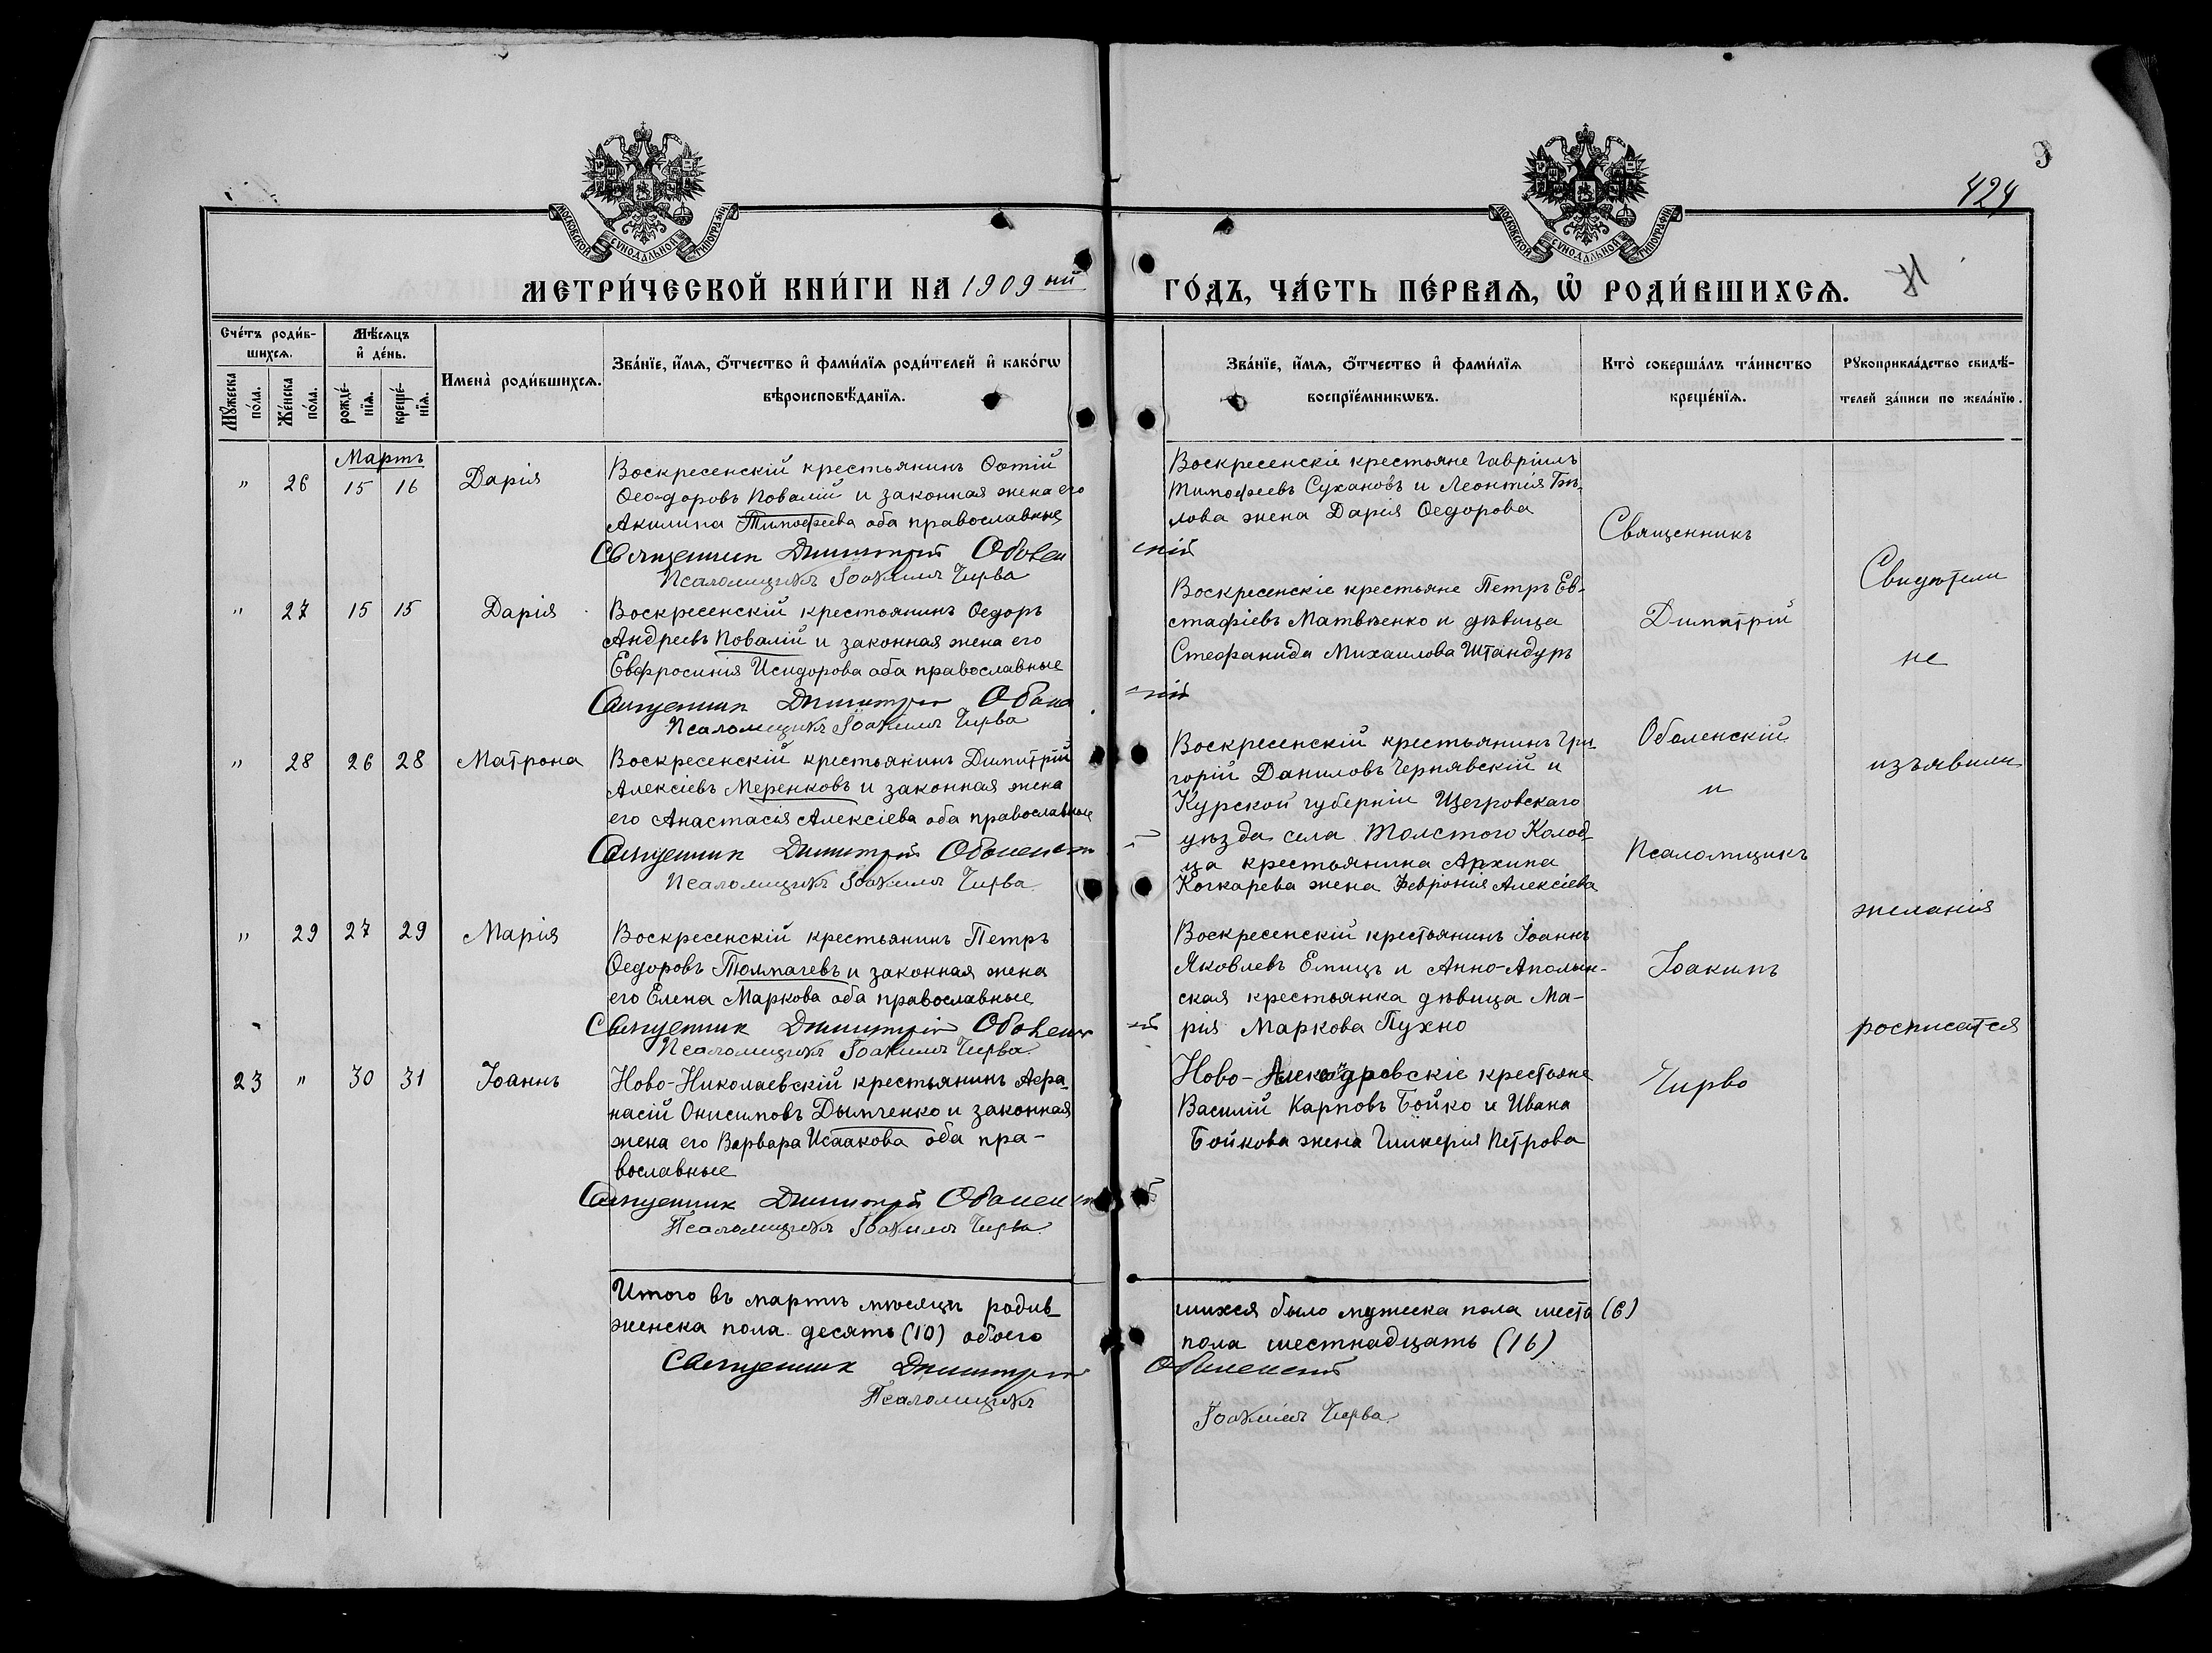 424
МОСКОВСКОЙ СѴНОДАЛЬНОЙ ТИПОГРАФІИ
МОСКОВСКОЙ СѴНОДАЛЬНОЙ ТИПОГРАФІИ
МЕТРИ́ЧЕСКОЙ КНИ́ГИ НА 1909 ный
ГО́ДЪ, ЧА́СТЬ ПЕ́РВАѦ, Ѡ҆ РОДИ́ВШИХСѦ.
Сче́тъ роди́в-
шихсѧ.
Мꙋ́жеска по́ла.
Же́нска по́ла.
Мѣ́сѧцъ
и҆ де́нь.
рожде́-
нїѧ.
креще́-
нїѧ.
Имена̀ роди́вшихсѧ.
Зва́нїе, и҆́мѧ, ѻ҆́тчество и҆ фами́лїѧ роди́телей и҆ како́гѡ
вѣроисповѣ́данїѧ.
Зва́нїе, и҆́мѧ, ѻ҆́тчество и҆ фами́лїѧ
воспрїе́мникѡвъ.
Кто̀ соверша́лъ та́инство
креще́нїѧ.
Рꙋкоприкла́дство свидѣ́-
телей за́писи по жела́нїю.
Мартъ
" 26 15 16 Дарія
Воскресенскій крестьянинъ Ѳотій
Ѳеодоровъ Повалій и законная жена его
Акилина Тимоѳеева оба православные
Священник Димитрій Оболен
скій
Псаломщикъ Іоакимъ Чирва
Воскресенскіе крестьяне Гавріилъ
Тимоѳеевъ Сухановъ и Леонтія Бѣ-
лова жена Дарія Ѳедорова
" 27 15 15 Дарія
Воскресенскій крестьянинъ Ѳедоръ
Андреевъ Повалій и законная жена его
Евфросинія Исидорова оба православные
Священник Димитрій Оболе
скій
Псаломщикъ Іоакимъ Чирва
Воскресенскіе крестьяне Петръ Ев-
стафіевъ Матвѣенко и дѣвица
Стефанида Михаилова Штандуръ
" 28 26 28 Матрона
Воскресенскій крестьянинъ Димитрій
Алексіевъ Меренковъ и законная жена
его Анастасія Алексіева оба православные
Священник Димитрій Оболенскі
й
Псаломщикъ Іоакимъ Чирва
Воскресенскій крестьянинъ Гри-
горій Даниловъ Чернявскій и
Курской губерніи Щегровскаго
уѣзда села Толстого Колод-
ца крестьянина Архипа
Кочкарева жена Февронія Алексіева
" 29 27 29 Марія
Воскресенскій крестьянинъ Петръ
Ѳедоровъ Толмачевъ и законная жена
его Елена Маркова оба православные
Священник Димитрій Оболенск
ій
Псаломщикъ Іоакимъ Чирва
Воскресенскій крестьянинъ Іоаннъ
Яковлевъ Емицъ и Анно-Аполин-
ская крестьянка дѣвица Ма-
рія Маркова Пухно
23 " 30 31 Іоаннъ
Ново-Николаевскій крестьянинъ Аѳа-
насій Онисимовъ Дымченко и законная
жена его Варвара Исаакова оба пра-
вославные
Священник Димитрій Оболенск
ій
Псаломщикъ Іоакимъ Чирва
Ново-Александровскіе крестьяне
Василій Карповъ Бойко и Ивана
Бойкова жена Гликерія Петрова
Священникъ
Димитрій
Оболенскій
и
Псаломщикъ
Іоакимъ
Чирво
Свидѣтели
не
изъявили
желанія
росписатся
Итого въ мартѣ мѣсяцѣ родив-
шихся было мужеска пола шесть (6)
женска пола десять (10) обоего
пола шестнадцать (16)
Священник Димитрій
Оболенскій
Псаломщикъ
Іоакимъ Чирва